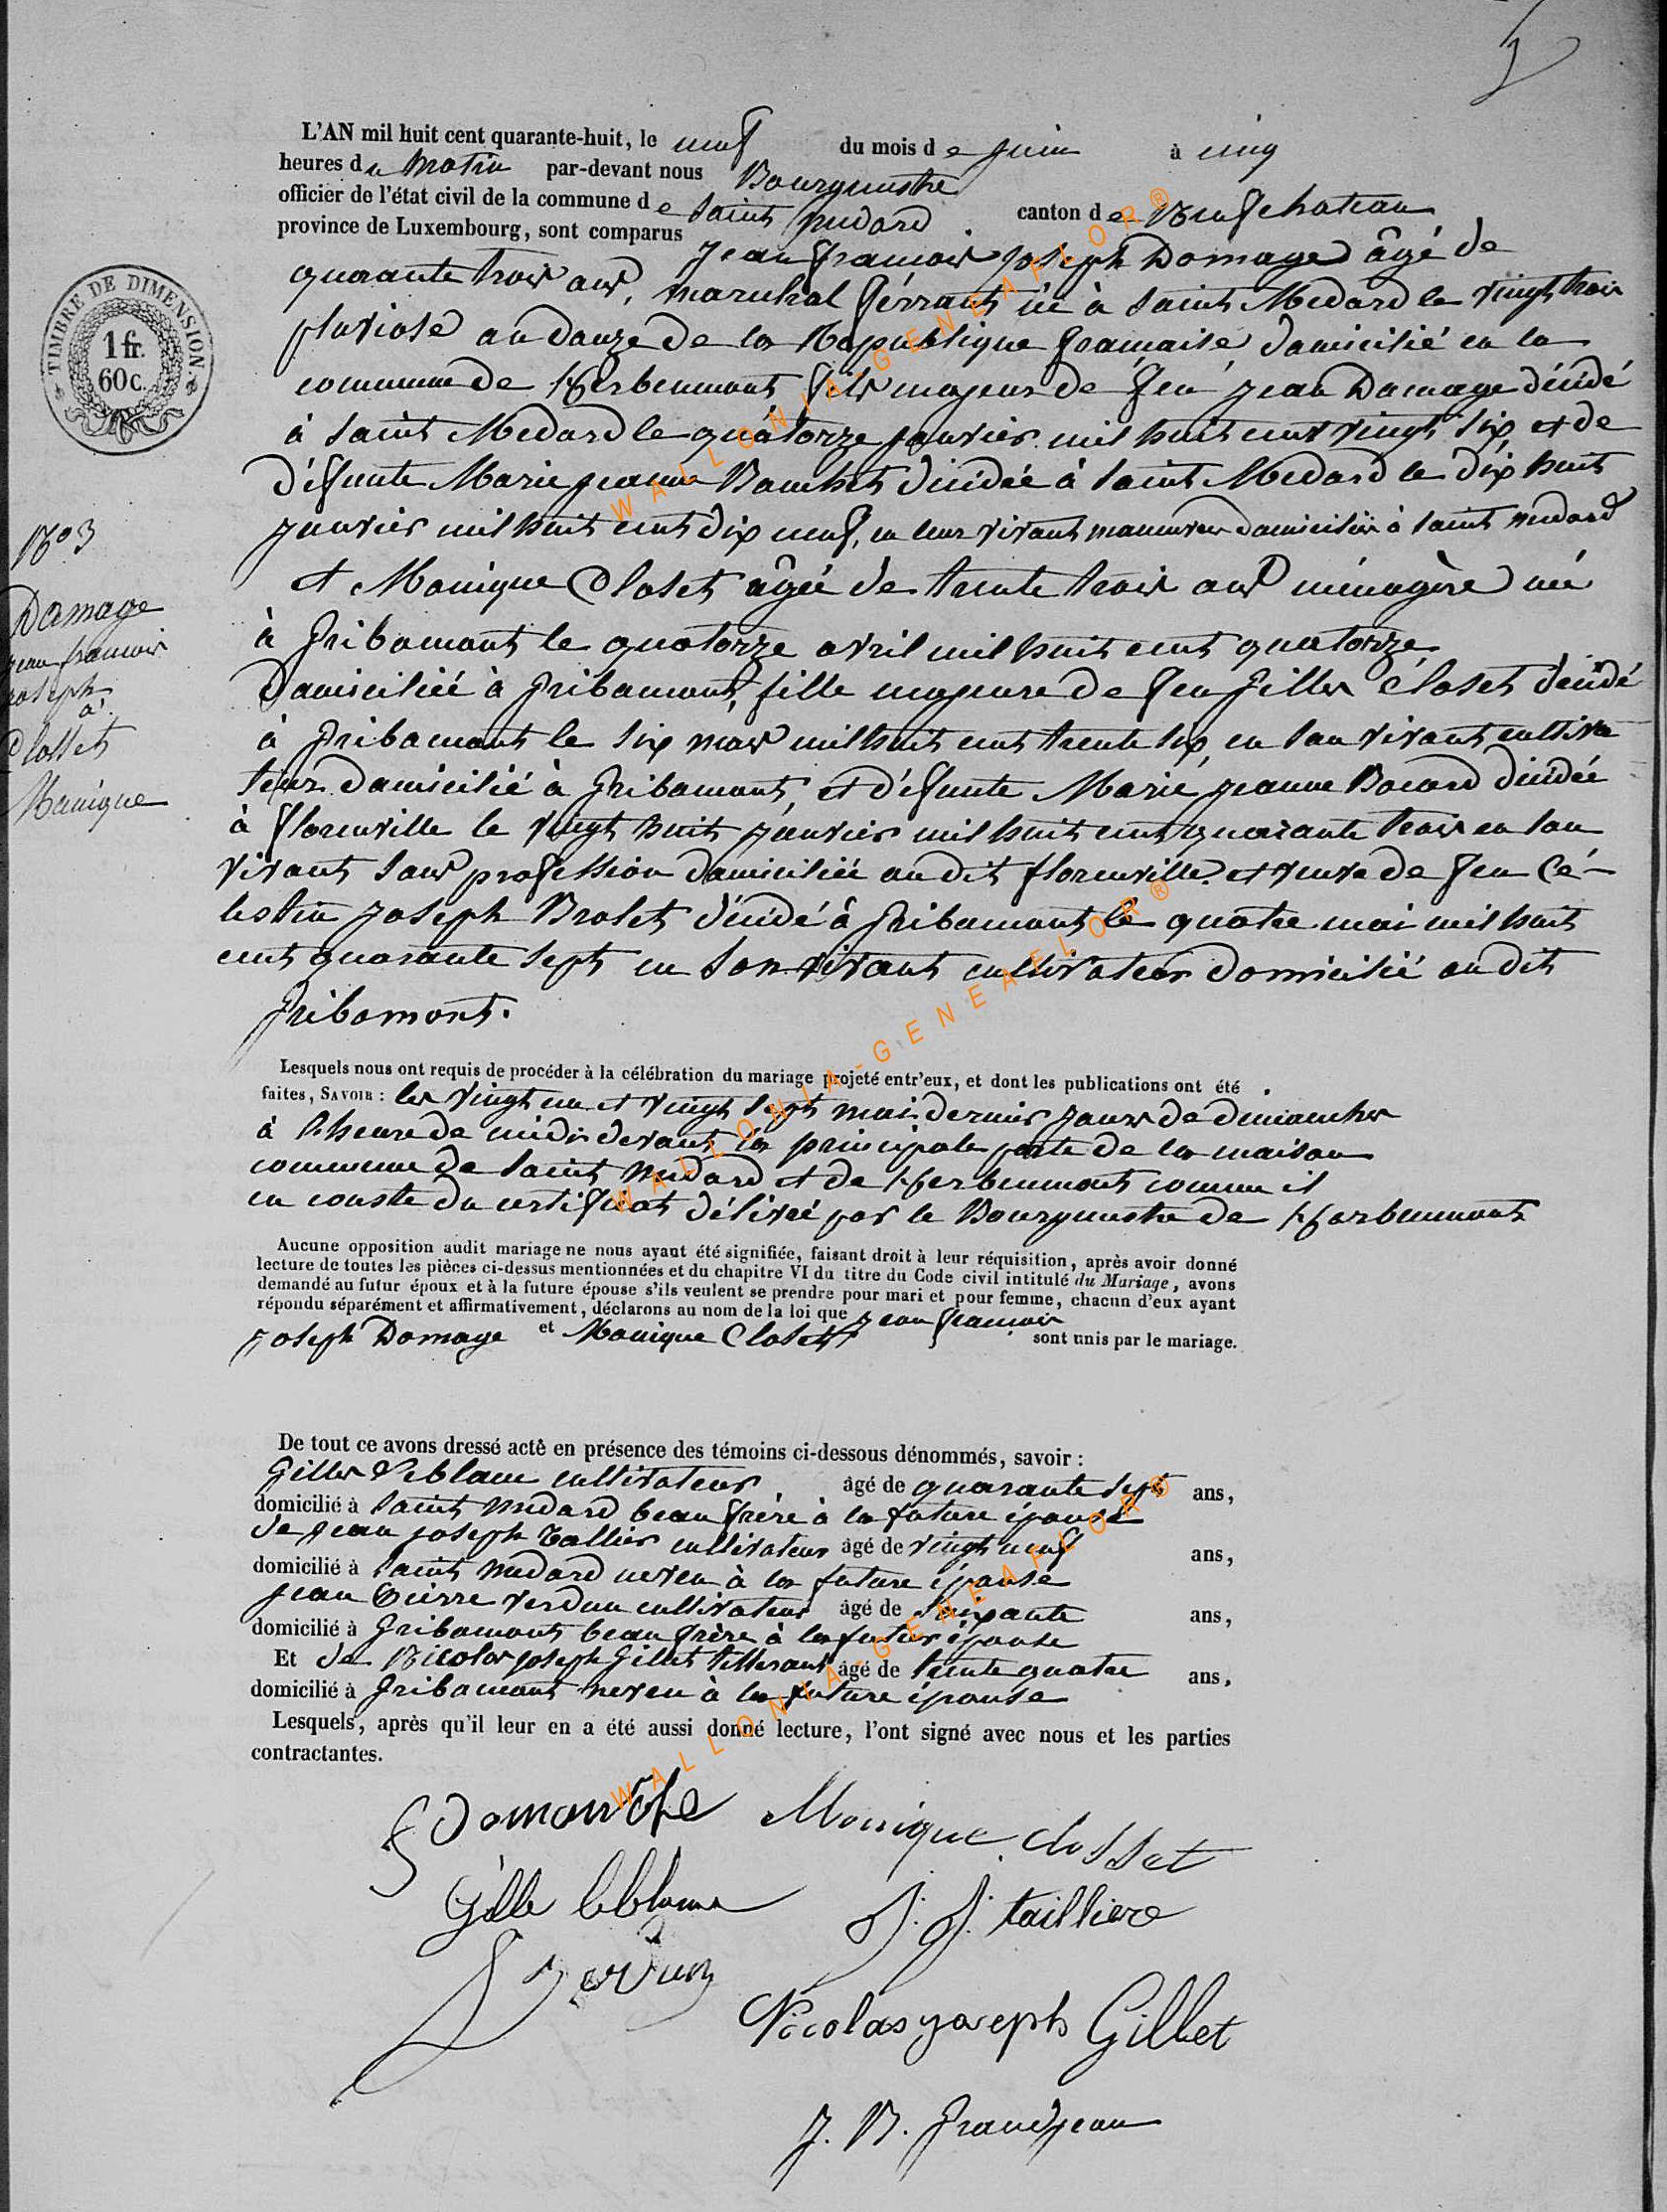 L'AN mil huit cent quarante-huit, le neuf du mois de juin à cinq
heures du Matin par-devant nous Bourgmestre
officier de l'état civil de la commune de Saint Medard canton de Neufchateau
province de Luxembourg, sont comparus Jean françois Joseph Domage âgé de
quarante trois ans, marechal férrant né à Saint Medard le vingt trois
pluviose an douze de la Republique française domicilié en la
commune de Herbeumont fils majeur de feu Jean Damage décédé
à Saint Medard le quatorze janvier mil huit cent vingt six et de
défunte Marie jeanne Bauchet décédée à Saint Medard le dix huit
janvier mil huit cent dix neuf, en leur vivant manœuvres domiciliés à Saint Medard
et Monique Closet âgée de trente trois ans ménagère née
à Gribomont le quatorze avril mil huit cent quatorze
domiciliée à Gribaumont, fille majeure de feu Gilles Closet décédé
à Gribaumont le six mars mil huit cent trente six, en son vivant cultiva
teur domicilié à Gribamont, et défunte Marie jeanne Bocard décédée
à florenville le vingt huit janvier mil huit cent quarante trois en son
vivant sans profession domiciliée au dit florenville et veuve de feu Cé-
lestin Joseph Brolet décédé à Gribaumont le quatre mai mil huit
cent quarante sept en son vivant cultivateur domicilié au dit
Gribomont.
N°3
Damage
Jean francois
Joseph
à
Closset
Monique
TIMBRE DE DIMENSION
1 fr.
60 c.
Lesquels nous ont requis de procéder à la célébration du mariage projeté entr'eux, et dont les publications ont été
faites, SAVOIR : les vingt un et vingt sept mai dernier jours de dimanches
à l'heure de midi devant la principale porte de la maison
commune de Saint Medard et de Herbeumont comme il
en conste du certificat délivré par le Bourgmestre de Herbeumont
Aucune opposition audit mariage ne nous ayant été signifiée, faisant droit à leur réquisition, après avoir donné
lecture de toutes les pièces ci-dessus mentionnées et du chapitre VI du titre du Code civil intitulé du Mariage, avons
demandé au futur époux et à la future épouse s'ils veulent se prendre pour mari et pour femme, chacun d'eux ayant
répondu séparément et affirmativement, déclarons au nom de la loi que Jean francois
Joseph Domage et Monique Closet sont unis par le mariage.
De tout ce avons dressé acte en présence des témoins ci-dessous dénommés, savoir :
Gilles Leblanc cultivateur âgé de quarante sept ans,
domicilié à Saint Medard beau frère à la future épouse
de Jean joseph Tallier cultivateur âgé de vingt neuf ans,
domicilié à Saint Medard neveu à la future épouse
Jean Pierre Verdun cultivateur âgé de soixante ans,
domicilié à Gribaumont beau frère à la futur épouse
Et de Nicolas joseph Gillet tisserant âgé de trente quatre ans,
domicilié à Gribaumont neveu à la future épouse
Lesquels, après qu'il leur en a été aussi donné lecture, l'ont signé avec nous et les parties
contractantes.
Monique Closset
Gille leblanc
J. J. tailliere
Verdun
Nicolas joseph Gillet
J. B. Grandjean
WALLONIA-GENEAFLOR®
WALLONIA-GENEAFLOR®
WALLONIA-GENEAFLOR®